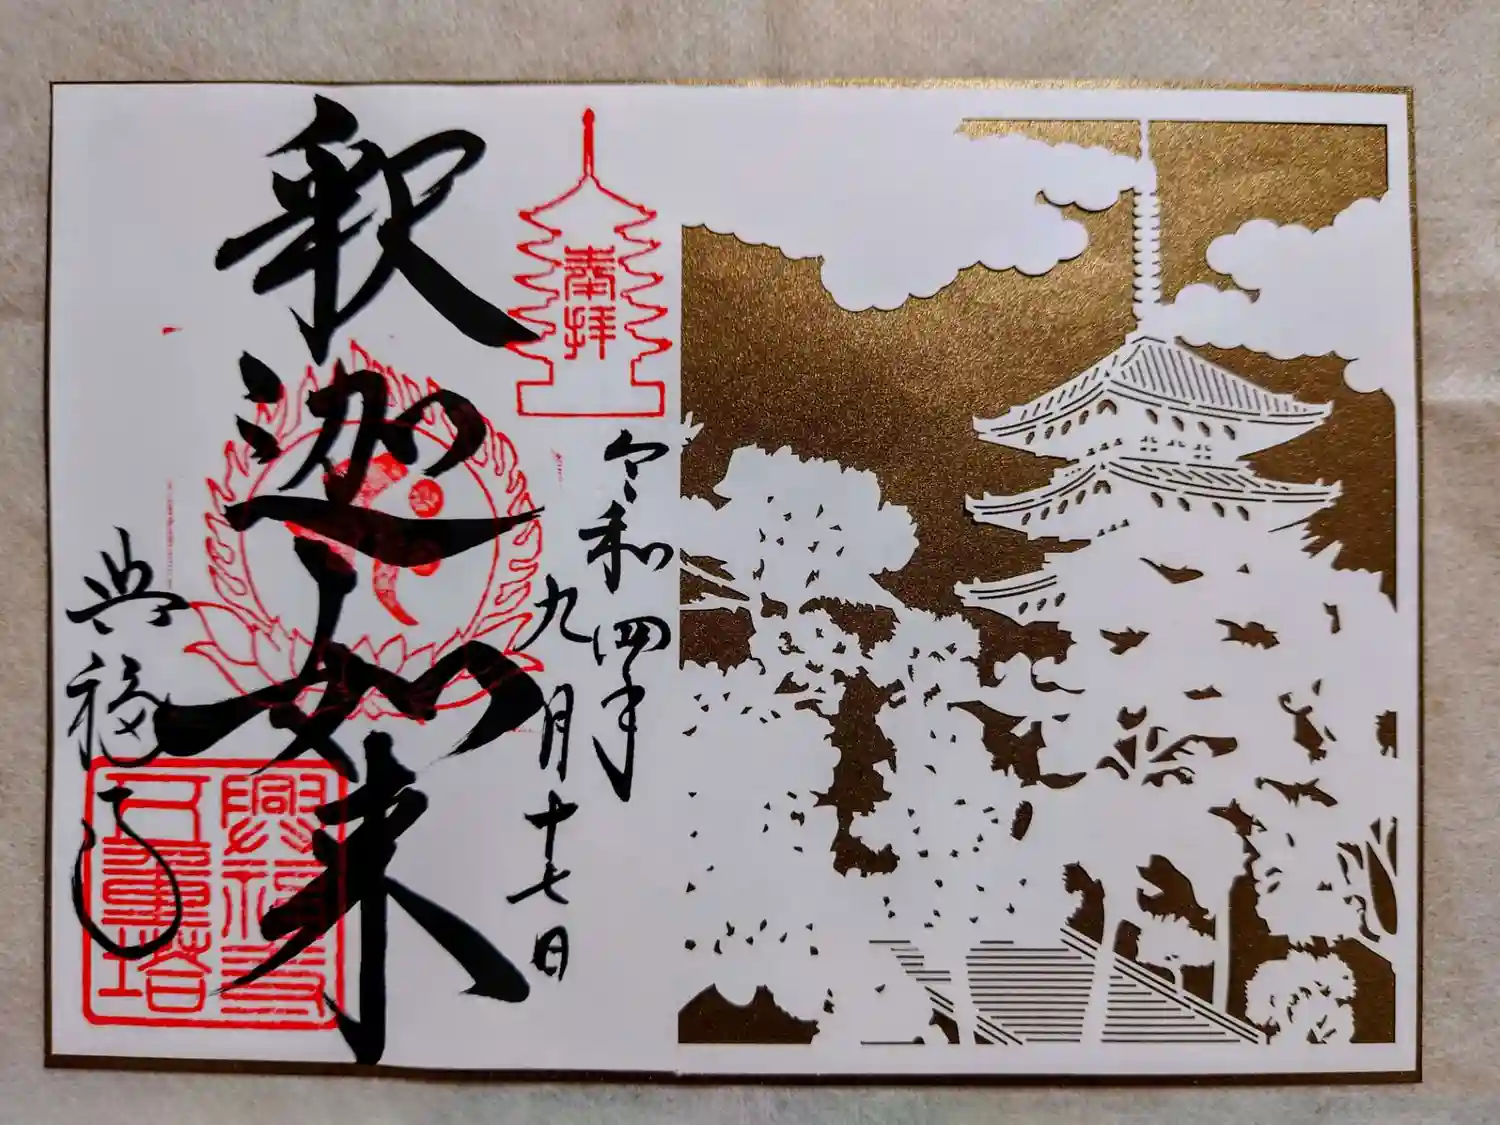 奉拝
令和四年
九月十七日
釈迦如来
興福寺
興福寺
五重塔